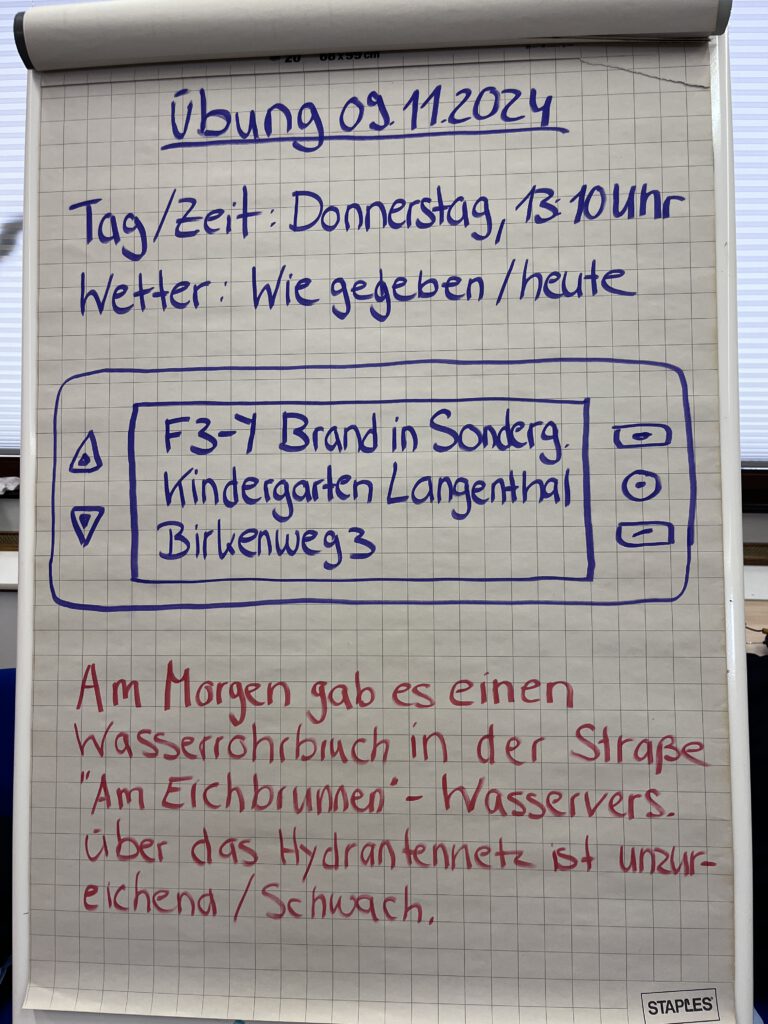 Übung 09.11.2024
Tag/Zeit: Donnerstag, 13:10 Uhr
Wetter: Wie gegeben/heute
F3-Y Brand in Sonderg.
Kindergarten Langenthal
Birkenweg 3
Am Morgen gab es einen
Wasserrohrbruch in der Straße
"Am Eichbrunnen" - Wasservers.
über das Hydrantennetz ist unzur-
eichend / Schwach.
STAPLES